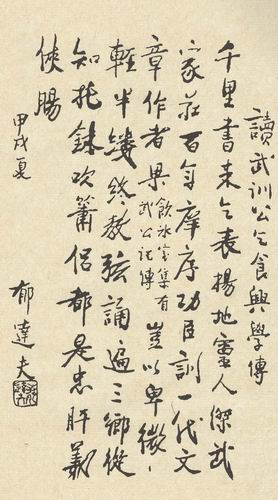 讀武訓公乞食興學傳
千里書來乞表揚地靈人傑武
家莊百年庠序功臣訓一代文
章作者梁飲冰室集有武公記傳豈以卑微
輕半縷終教弦誦遍三鄉從
知托鉢吹簫侶都是忠肝義
俠腸
甲戌夏
郁達夫